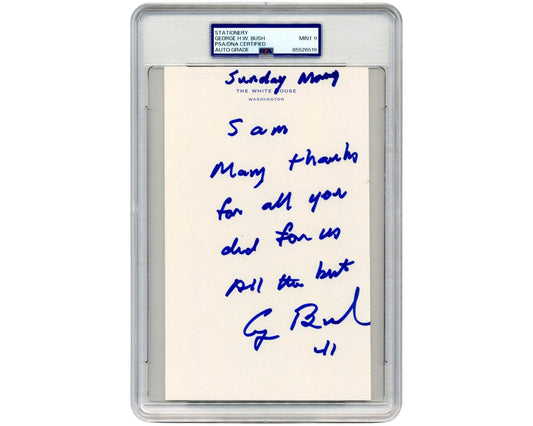 STATIONERY
GEORGE H.W. BUSH
PSA/DNA CERTIFIED
AUTO GRADE
MINT 9
85526519
Sunday Morng
THE WHITE HOUSE
WASHINGTON
Sam
Many thanks
for all you
did for us
All the best
G Bush
41